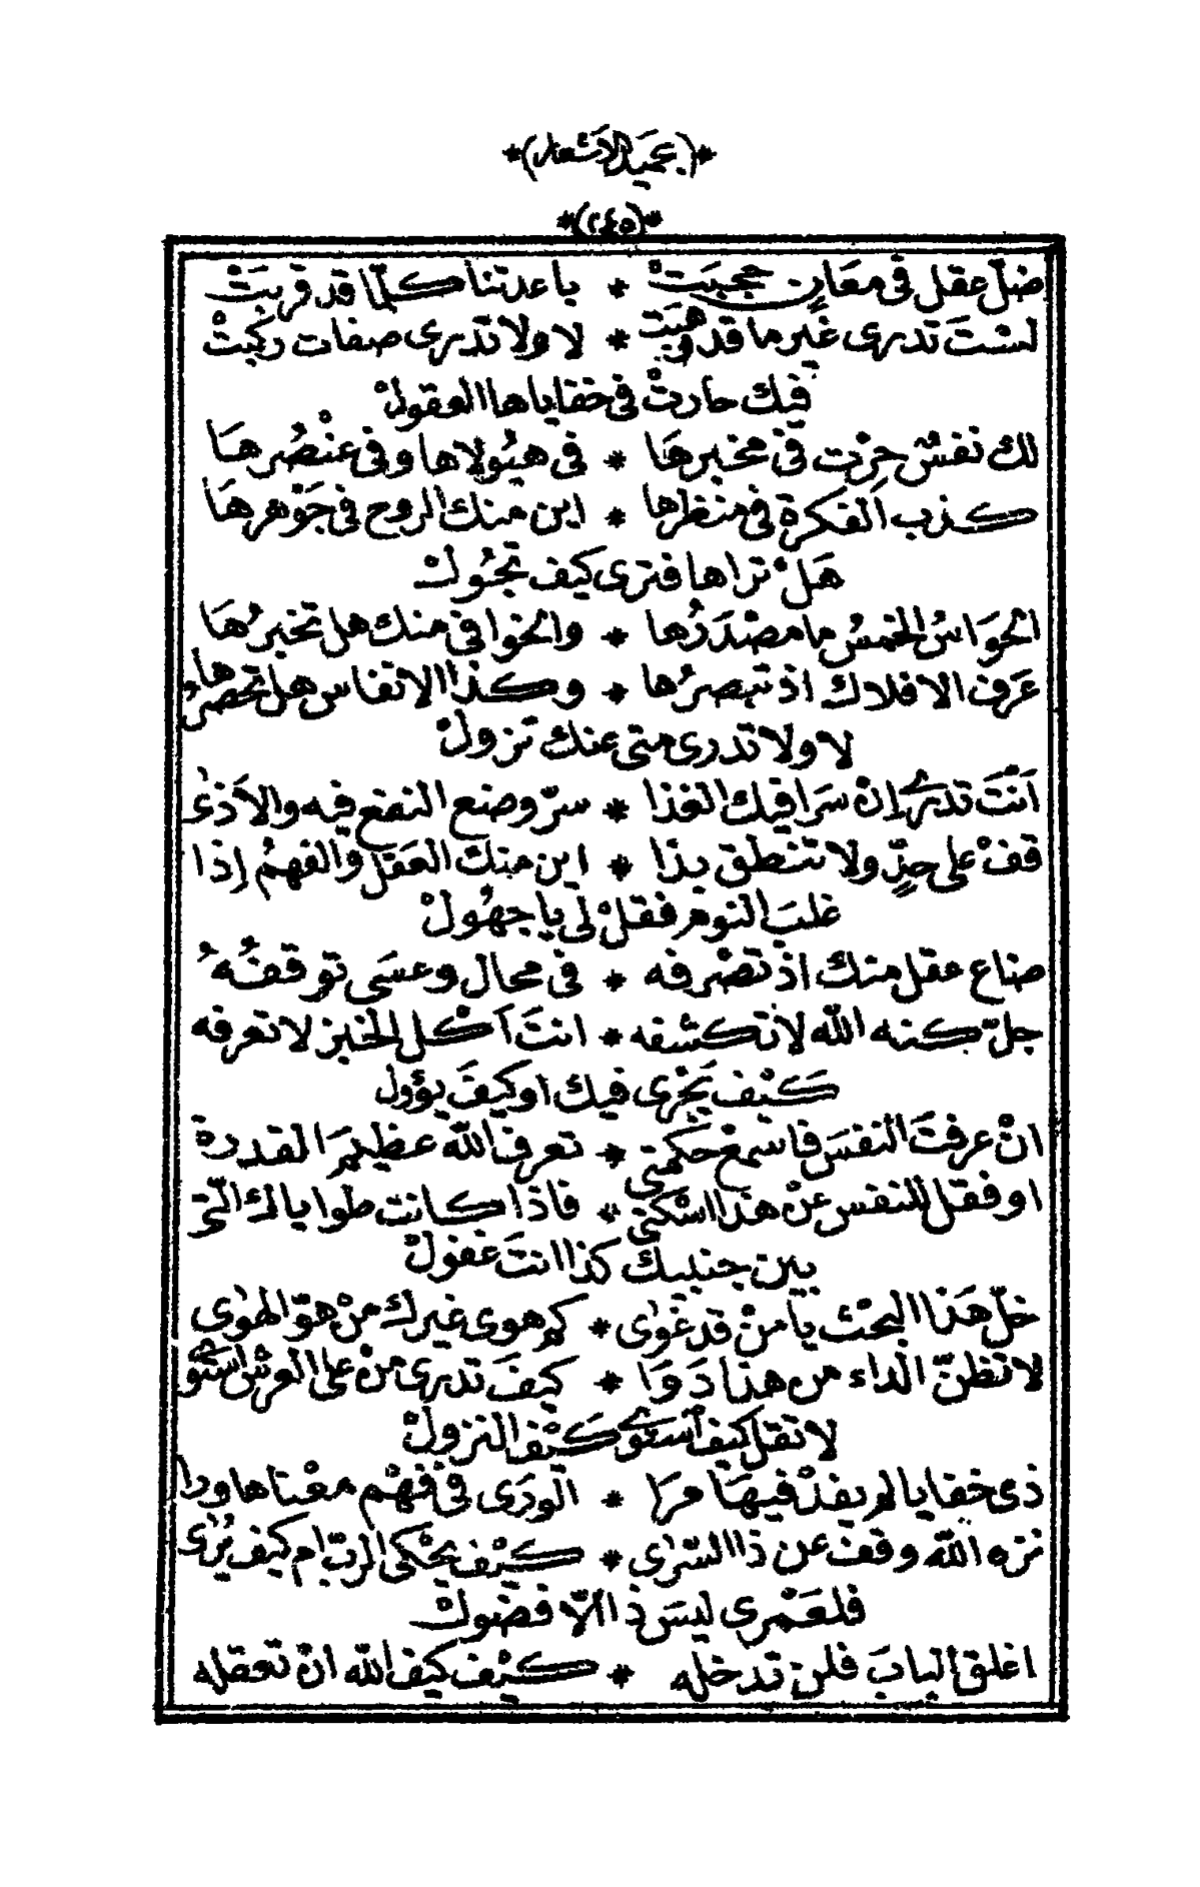 *(بحميد الأشعار)*
*(٢٤٥)*
ضلّ عقل في معانٍ حجبَتْ * باعدتنا كلّما قد قربَتْ
لستَ تدرى غير ما قد وُهبَت * لا ولا تدرى صفات ركبتْ
فيك حارتْ في خفاياها العقولْ
لك نفسٌ حِرْت في مخبرهَا * في هيُولاها وفي عنْصُرهَا
كذب الفكرة في منظرها * اين منك الروح في جَوْهرهَا
هَلْ تراها فترى كيف تجُولْ
الحوَاسُ الخمسُ ما مصْدَرُها * والخوافي منك هل تخبرُهَا
عَرف الافلاك اذ تبصرُها * وكذا الانفاس هل تحصرُها
لا ولا تدرى متى عنك تزولْ
اَنْتَ تدرى إنْ سَرَا فيك الغذا * سرّ وضع النفع فيه والأذىٰ
قفْ على حدٍّ ولا تنطق بذا * اين منك العقل والفهمُ إذا
غلبَ النوم فقلْ لى يا جهُولْ
ضاع عقل منك اذ تصْرفه * في محال وعسَى توقفُهُ
جلّ كنه الله لا تكشفه * انتَ أكْل الخبز لا تعرفه
كيْف يَجْرى فيك او كيفَ يؤول
انْ عرفتَ النفسَ فاسْمعْ حكمتي * تعرف الله عظيمَ القدرة
او فقل للنفس عنْ هذا اسْكتي * فاذا كانت طوايا لك الّتى
بين جنبيك كذا انتَ غفولْ
خلّ هَذا البحْث يا منْ قد غوٰى * كم هوى غيرك منْ هوّ الهوٰى
لا تظنّ الداء من هذا دَوَا * كيفَ تدرى منْ على العرش استوٰى
لا تقل كيف استوى كيْف النزولْ
ذى خفايا لم يفدْ فيهَا مرا * الورَى في فهْم معْناها ورا
نزه الله وقف عن ذا السّرٰى * كيْف يحْكى الربّ ام كيف يُرٰى
فلعَمْرى ليسَ ذا الّا فضولْ
اغلق البابَ فلن تدخله * كيْف كيف الله انْ تعقله